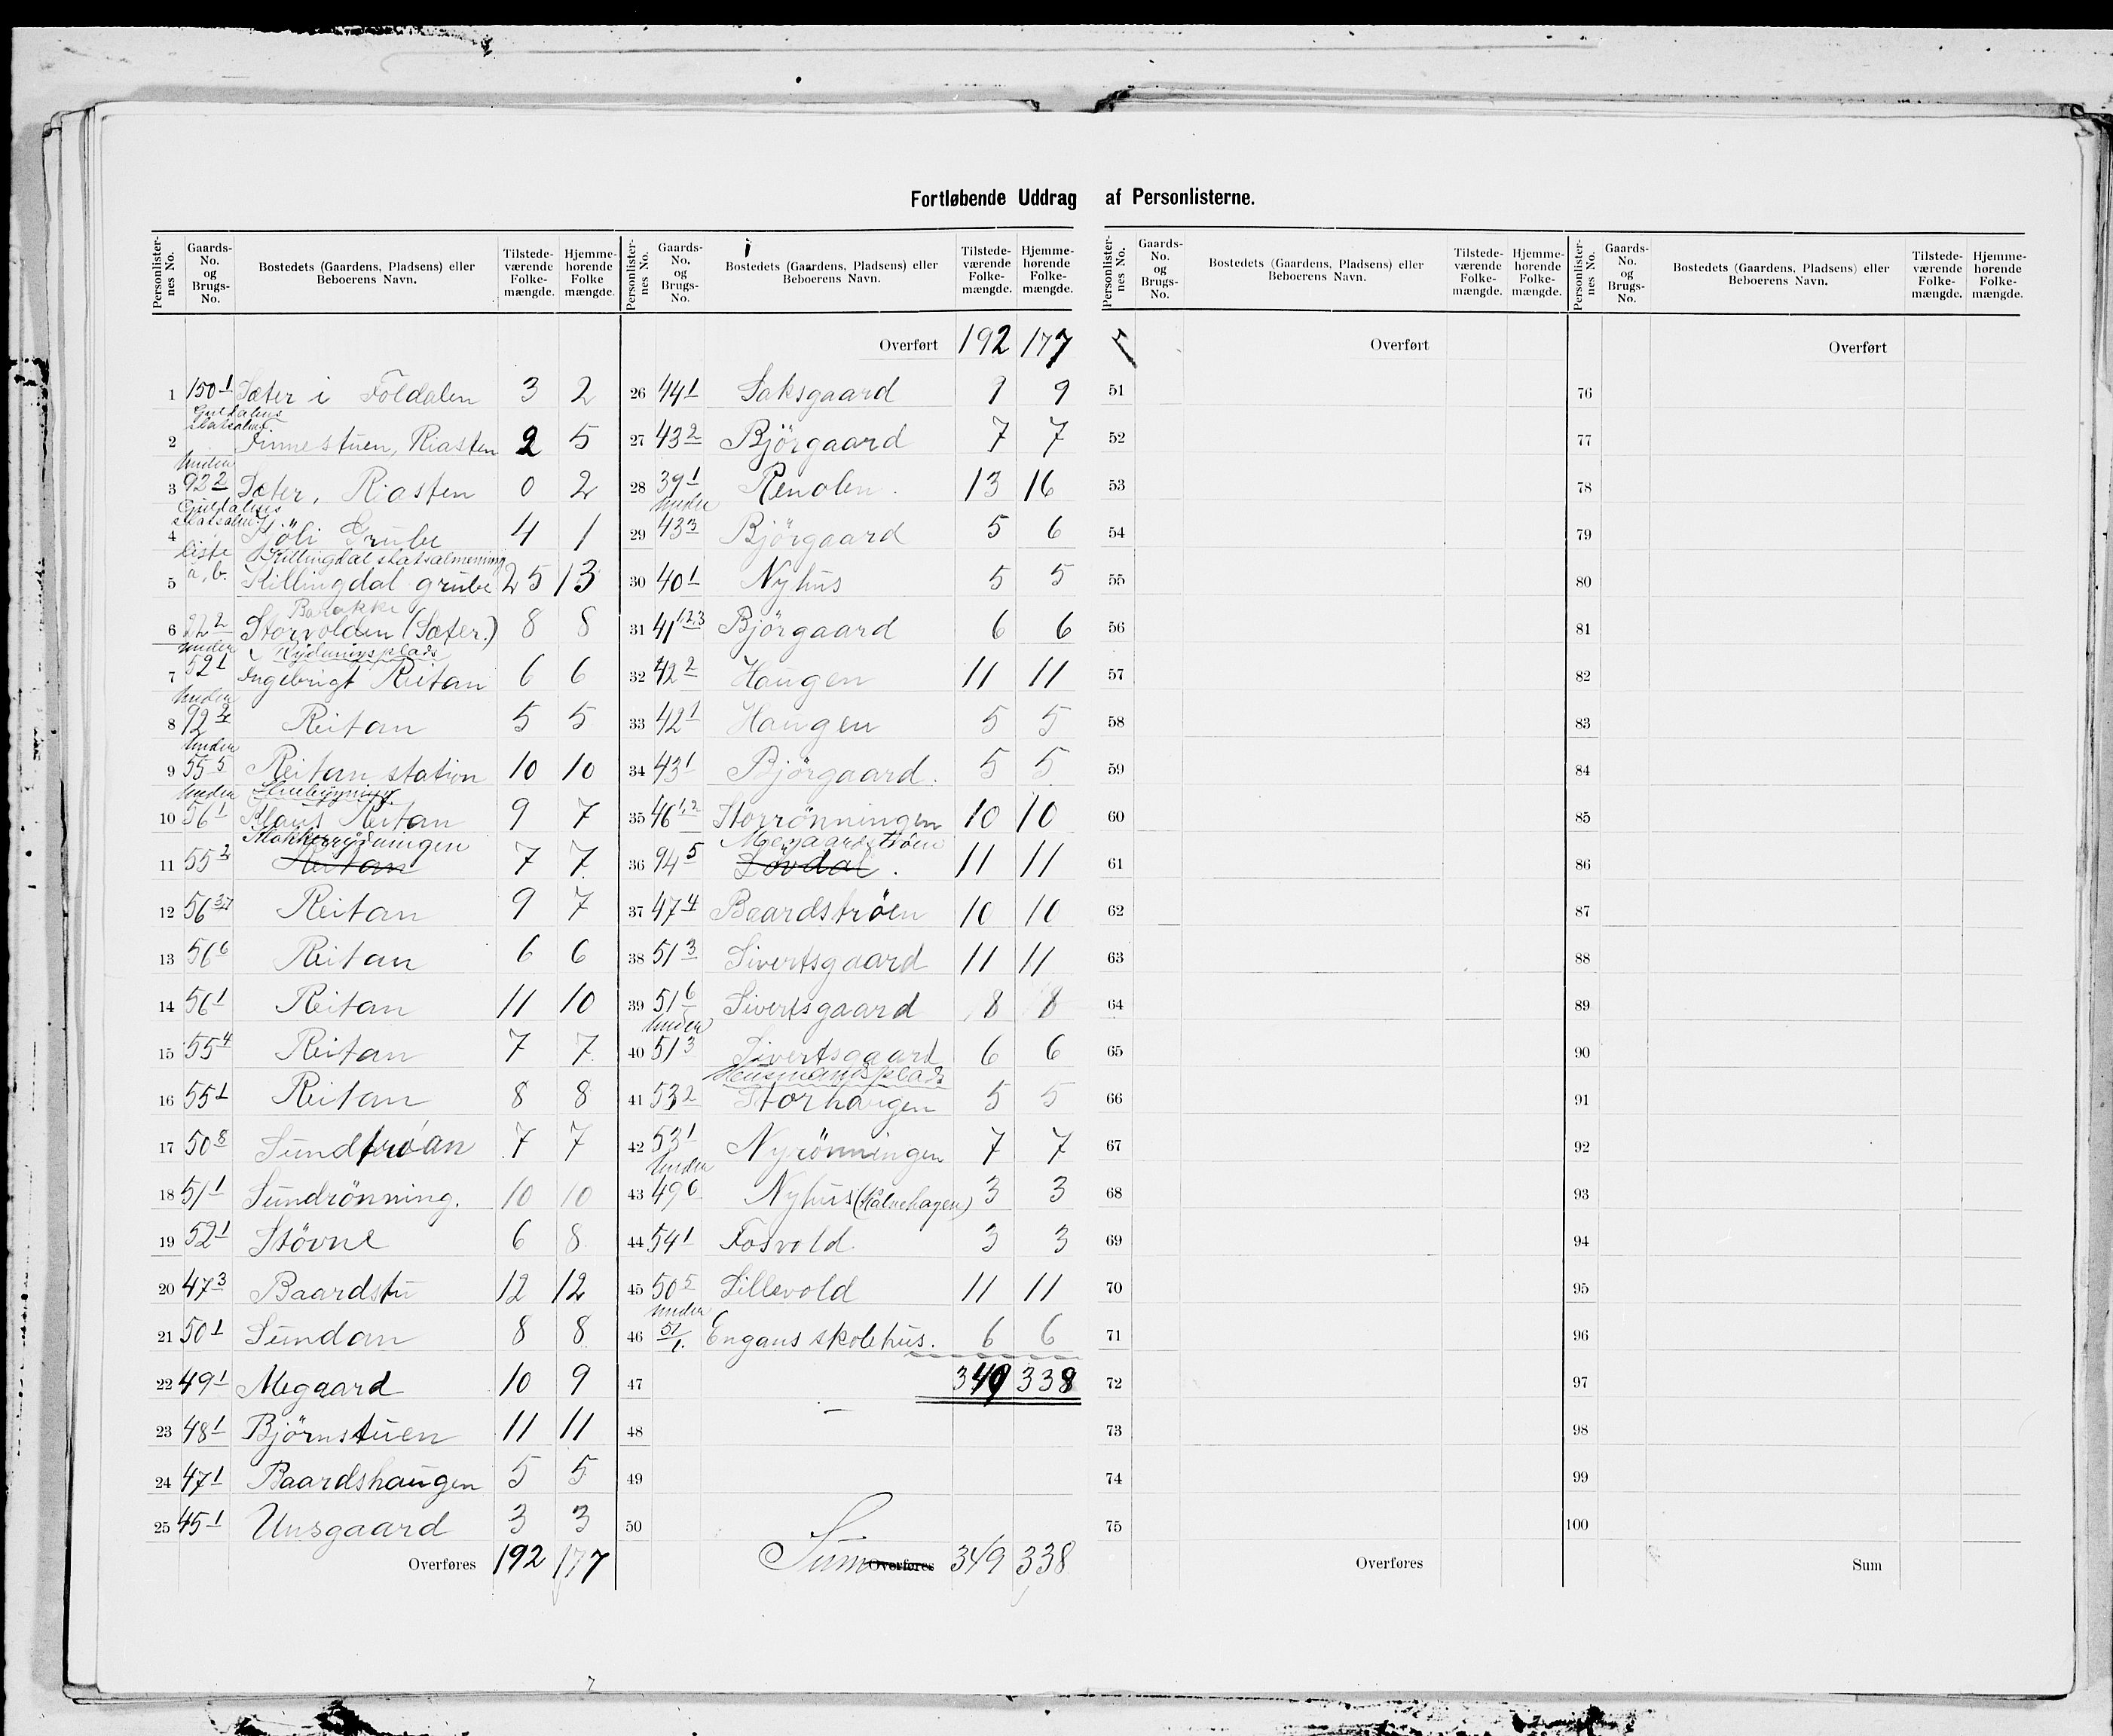 Fortløbende Uddrag af Personlisterne.
Personlisternes No. Gaards-No. og Brugs-No. Bostedets (Gaardens, Pladsens) eller Beboerens Navn. Tilstedeværende Folkemængde. Hjemmehørende Folkemængde.
1 150 1 Sæter i Foldalen 3 2
Guldalens statsalm.
2 Finnestuen, Riasten 2 5
Under
3 92 2 Sæter, Riasten 0 2
Guldalens statsalmg
4 Kjöli Grube 4 1
liste a, b. Killingdal statsalmening
5 Killingdal grube 25 13
Barakke
6 92 2 Storvolden (Sæter.) 8 8
Under Rydningsplads
7 52 1 Ingebrigt Reitan 6 6
Under
8 92 2 Reitan 5 5
Under
9 55 5 Reitan station 10 10
Under
10 56 1 Klaus Reitan 9 7
Stokkerrydningen
11 55 2 Reitan 7 7
12 56 3,7 Reitan 9 7
13 56 6 Reitan 6 6
14 56 1 Reitan 11 10
15 55 4 Reitan 7 7
16 55 1 Reitan 8 8
17 50 8 Sundtröan 7 7
18 51 1 Sundrönning. 10 10
19 52 1 Stövne 6 8
20 47 3 Baardstu 12 12
21 50 1 Sundan 8 8
22 49 1 Megaard 10 9
23 48 1 Björnstuen 11 11
24 47 1 Baardshaugen 5 5
25 45 1 Unsgaard 3 3
Overføres 192 177
Personlisternes No. Gaards-No. og Brugs-No. Bostedets (Gaardens, Pladsens) eller Beboerens Navn. Tilstedeværende Folkemængde. Hjemmehørende Folkemængde.
Overført 192 177
26 44 1 Saksgaard 9 9
27 43 2 Björgaard 7 7
28 39 1 Renolen. 13 16
Under
29 43 3 Björgaard 5 6
30 40 1 Nyhus 5 5
31 41 1,2,3 Björgaard 6 6
32 42 2 Haugen 11 11
33 42 1 Haugen 5 5
34 43 1 Björgaard. 5 5
35 46 1,2 Storrönningen 10 10
Megaardströen
36 94 5 Lövdal. 11 11
37 47 4 Baardströen 10 10
38 51 3 Sivertsgaard 11 11
39 51 6 Sivertsgaard 8 8
Under
40 51 3 Sivertsgaard 6 6
Husmandsplads
41 53 2 Storhaugen 5 5
42 53 1 Nyrönningen 7 7
Under
43 49 6 Nyhus (Kålvehagen) 3 3
44 54 1 Fosvold. 3 3
45 50 5 Lillevold 11 11
Under
46 51/1. Engans skolehus. 6 6
47 349 338
48
49
50
Sum Overføres 349 338
Personlisternes No. Gaards-No. og Brugs-No. Bostedets (Gaardens, Pladsens) eller Beboerens Navn. Tilstedeværende Folkemængde. Hjemmehørende Folkemængde.
Overført
51
52
53
54
55
56
57
58
59
60
61
62
63
64
65
66
67
68
69
70
71
72
73
74
75
Overføres
Personlisternes No. Gaards-No. og Brugs-No. Bostedets (Gaardens, Pladsens) eller Beboerens Navn. Tilstedeværende Folkemængde. Hjemmehørende Folkemængde.
Overført
76
77
78
79
80
81
82
83
84
85
86
87
88
89
90
91
92
93
94
95
96
97
98
99
100
Sum